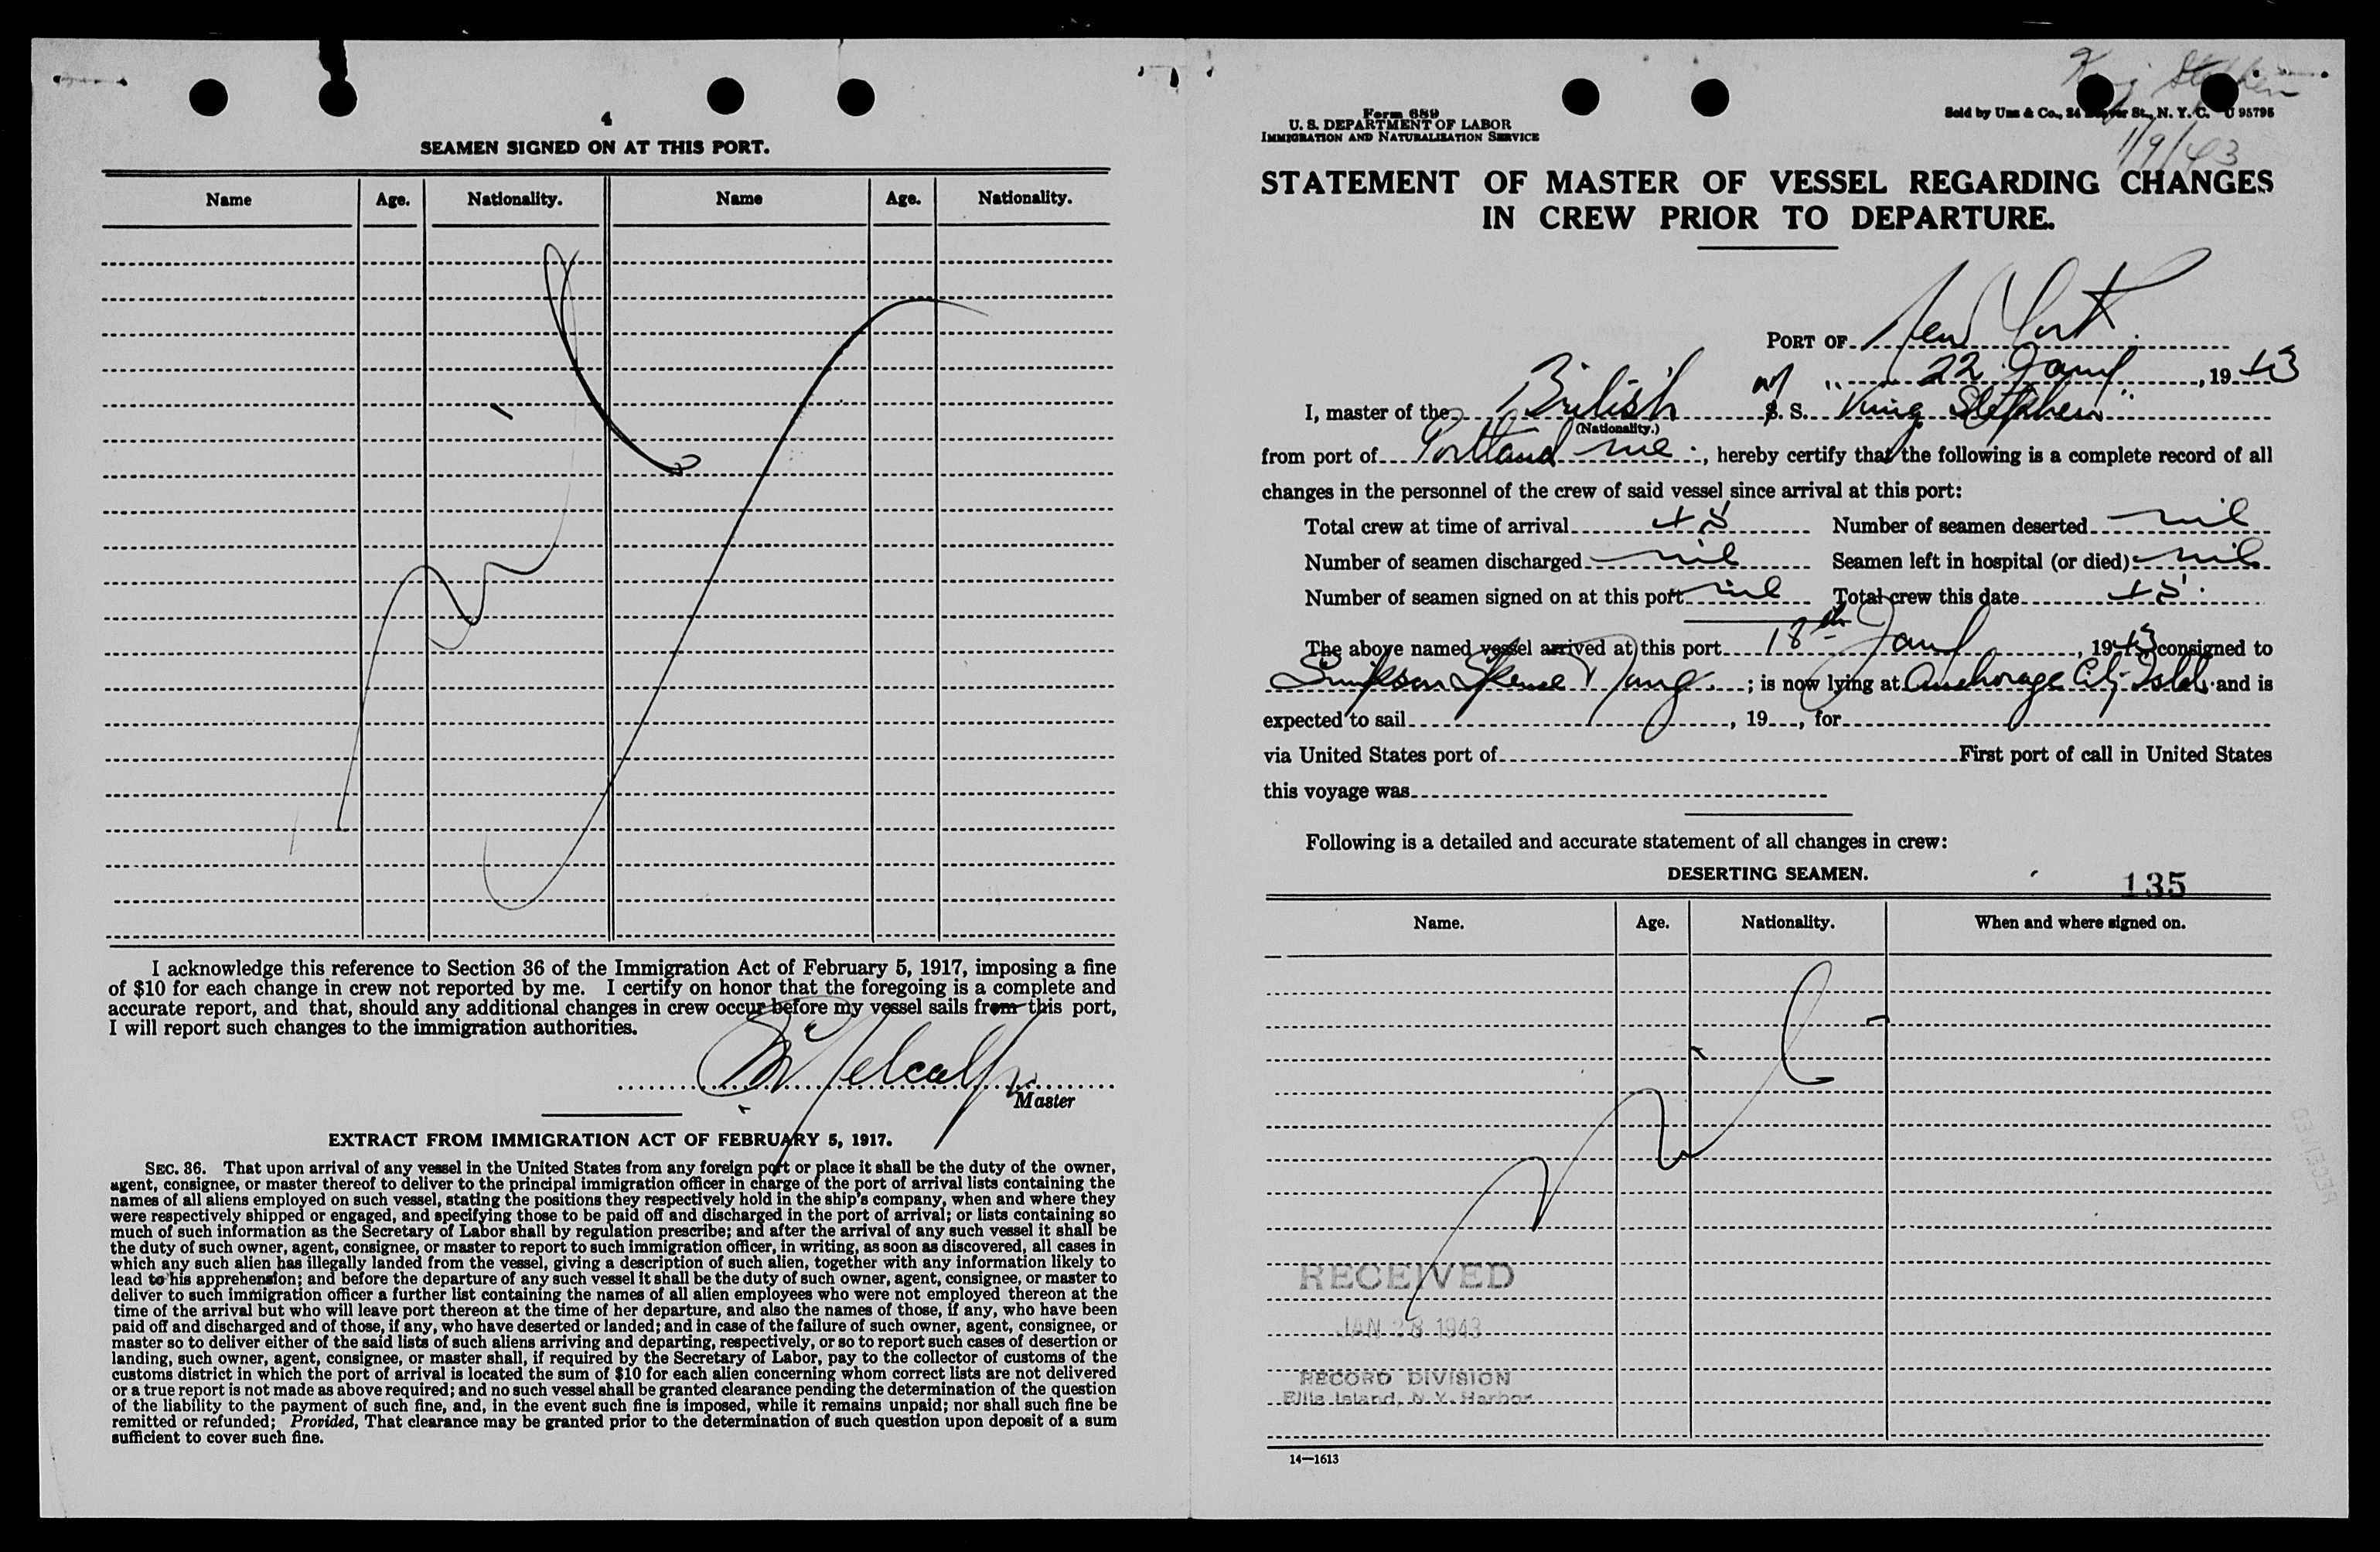 4
SEAMEN SIGNED ON AT THIS PORT.
Name Age. Nationality. Name Age. Nationality.
nil
I acknowledge this reference to Section 36 of the Immigration Act of February 5, 1917, imposing a fine
of $10 for each change in crew not reported by me. I certify on honor that the foregoing is a complete and
accurate report, and that, should any additional changes in crew occur before my vessel sails from this port,
I will report such changes to the immigration authorities.
Metcalfe
Master
EXTRACT FROM IMMIGRATION ACT OF FEBRUARY 5, 1917.
SEC. 36. That upon arrival of any vessel in the United States from any foreign port or place it shall be the duty of the owner,
agent, consignee, or master thereof to deliver to the principal immigration officer in charge of the port of arrival lists containing the
names of all aliens employed on such vessel, stating the positions they respectively hold in the ship's company, when and where they
were respectively shipped or engaged, and specifying those to be paid off and discharged in the port of arrival; or lists containing so
much of such information as the Secretary of Labor shall by regulation prescribe; and after the arrival of any such vessel it shall be
the duty of such owner, agent, consignee, or master to report to such immigration officer, in writing, as soon as discovered, all cases in
which any such alien has illegally landed from the vessel, giving a description of such alien, together with any information likely to
lead to his apprehension; and before the departure of any such vessel it shall be the duty of such owner, agent, consignee, or master to
deliver to such immigration officer a further list containing the names of all alien employees who were not employed thereon at the
time of the arrival but who will leave port thereon at the time of her departure, and also the names of those, if any, who have been
paid off and discharged and of those, if any, who have deserted or landed; and in case of the failure of such owner, agent, consignee, or
master so to deliver either of the said lists of such aliens arriving and departing, respectively, or so to report such cases of desertion or
landing, such owner, agent, consignee, or master shall, if required by the Secretary of Labor, pay to the collector of customs of the
customs district in which the port of arrival is located the sum of $10 for each alien concerning whom correct lists are not delivered
or a true report is not made as above required; and no such vessel shall be granted clearance pending the determination of the question
of the liability to the payment of such fine, and, in the event such fine is imposed, while it remains unpaid; nor shall such fine be
remitted or refunded; Provided, That clearance may be granted prior to the determination of such question upon deposit of a sum
sufficient to cover such fine.
King Stephen
Form 689
U. S. DEPARTMENT OF LABOR
IMMIGRATION AND NATURALIZATION SERVICE
Sold by Unz & Co., 24 St., N. Y. C. 95795
1/9/43
STATEMENT OF MASTER OF VESSEL REGARDING CHANGES
IN CREW PRIOR TO DEPARTURE.
PORT OF New York
22 Jany, 1943
I, master of the British S. S. "King Stephen"
(Nationality.)
from port of Portland me, hereby certify that the following is a complete record of all
changes in the personnel of the crew of said vessel since arrival at this port:
Total crew at time of arrival 45 Number of seamen deserted nil
Number of seamen discharged nil Seamen left in hospital (or died) nil
Number of seamen signed on at this port nil Total crew this date 45
The above named vessel arrived at this port 18th Jany, 1943 consigned to
Simpson Spence & Young; is now lying at Anchorage City Isld, and is
expected to sail, 19, for
via United States port of First port of call in United States
this voyage was
Following is a detailed and accurate statement of all changes in crew:
DESERTING SEAMEN.
135
Name. Age. Nationality. When and where signed on.
nil
RECEIVED
JAN 28 1943
RECORD DIVISION
Ellis Island, N.Y. Harbor
RECEIVED
14—1613